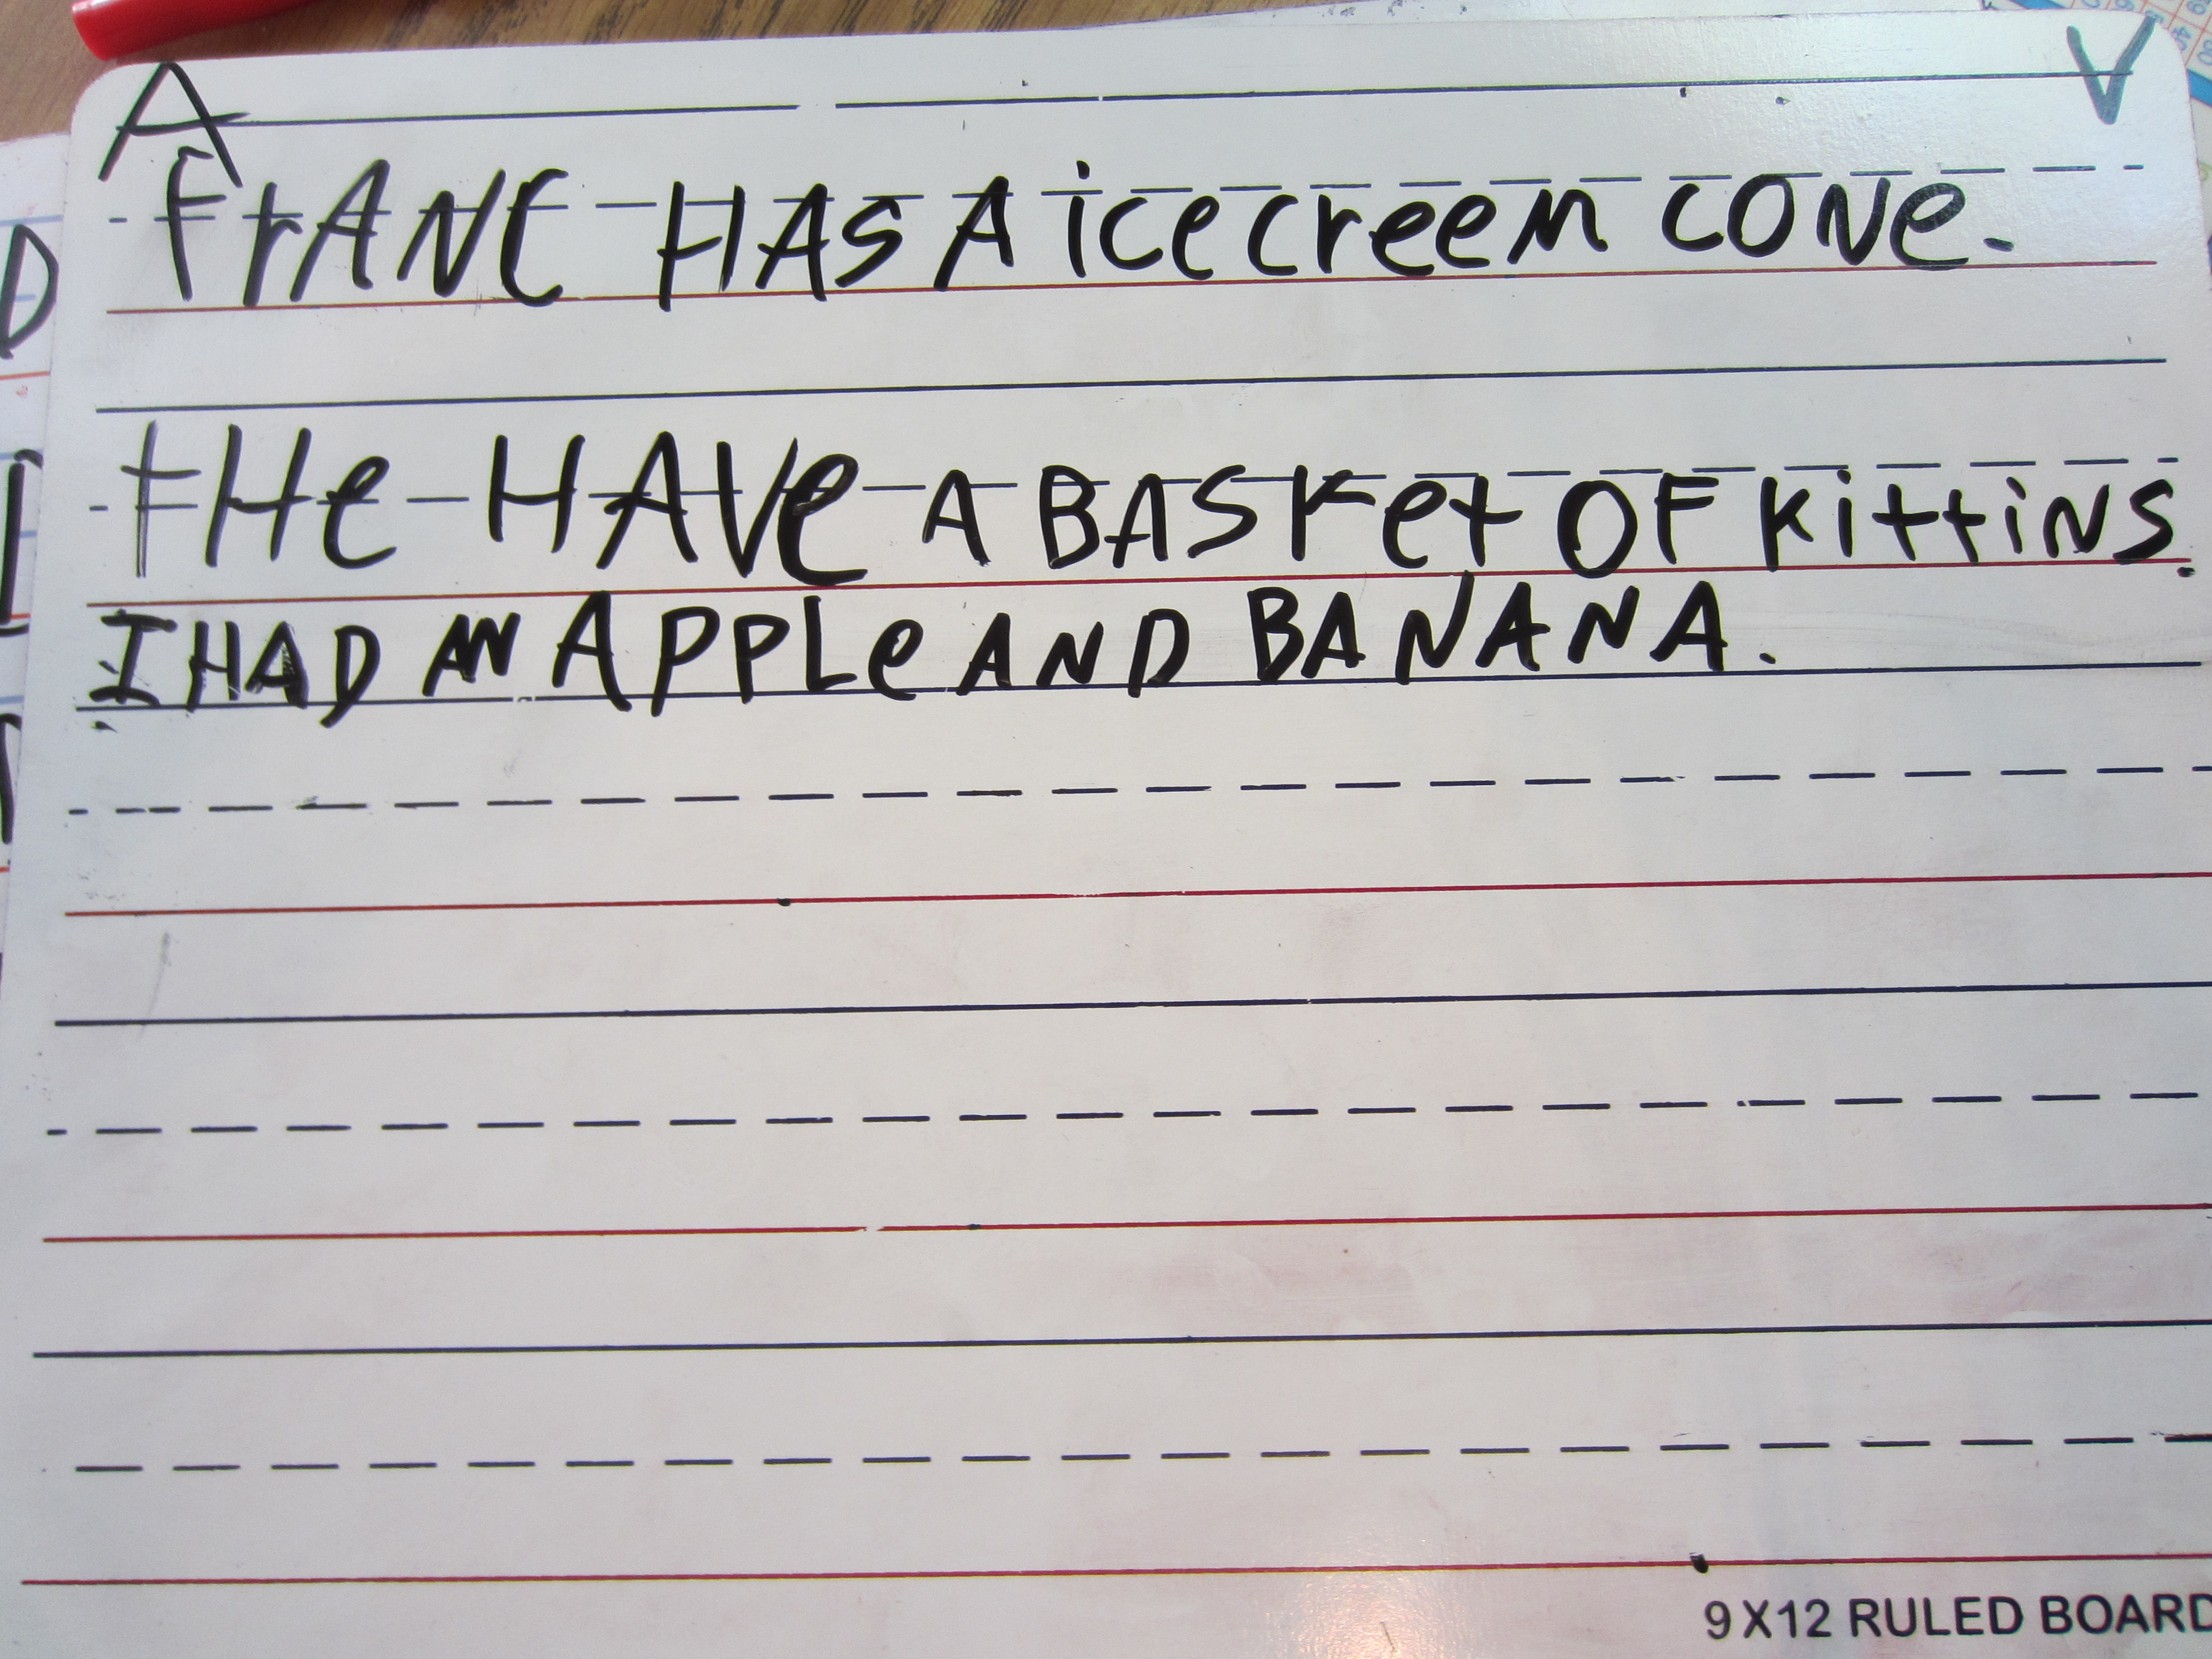 A V
FrANC HAS A icecreem CONe.
tHe HAVe A BASKet OF KittiNS.
I HAD AN APPLe AND BANANA.
9 X12 RULED BOARD